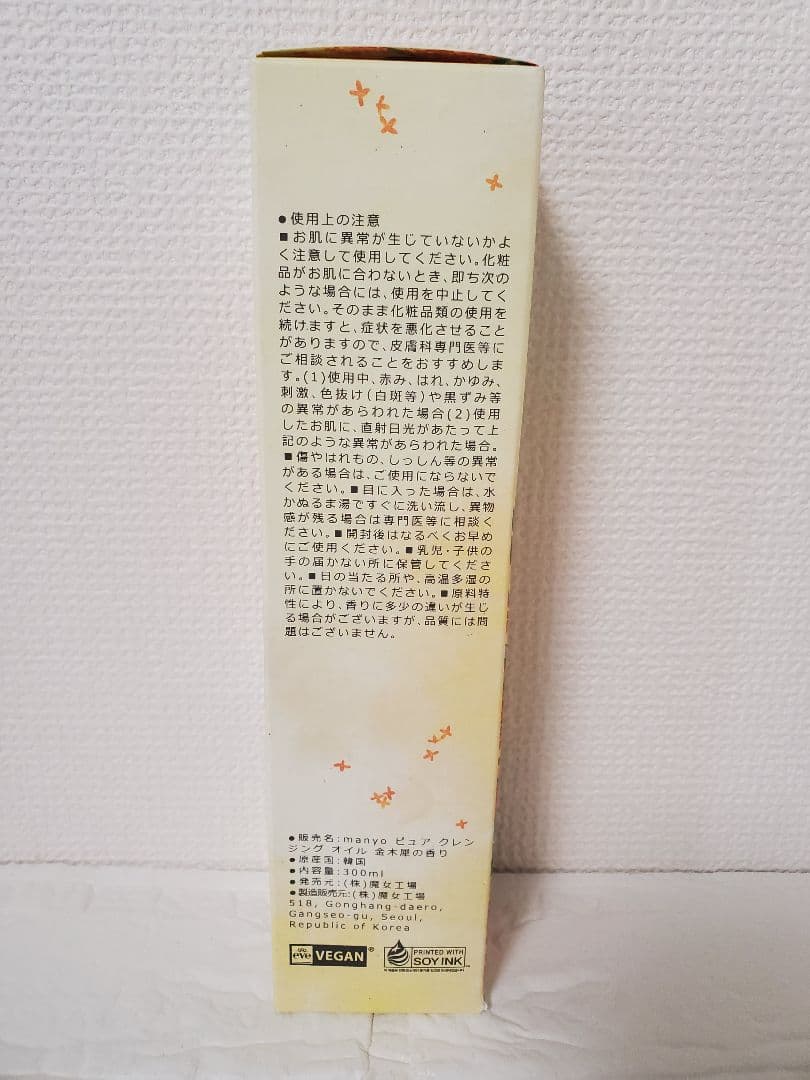 ●使用上の注意
■お肌に異常が生じていないかよ
く注意して使用してください。化粧
品がお肌に合わないとき、即ち次の
ような場合には、使用を中止してく
ださい。そのまま化粧品類の使用を
続けますと、症状を悪化させること
がありますので、皮膚科専門医等に
ご相談されることをおすすめしま
す。(1)使用中、赤み、はれ、かゆみ、
刺激、色抜け(白斑等)や黒ずみ等
の異常があらわれた場合(2)使用
したお肌に、直射日光があたって上
記のような異常があらわれた場合。
■傷やはれもの、しっしん等の異常
がある場合は、ご使用にならないで
ください。■目に入った場合は、水
かぬるま湯ですぐに洗い流し、異物
感が残る場合は専門医等に相談く
ださい。■開封後はなるべくお早め
にご使用ください。■乳児・子供の
手の届かない所に保管してくださ
い。■日の当たる所や、高温多湿の
所に置かないでください。■原料特
性により、香りに多少の違いが生じ
る場合がございますが、品質には問
題はございません。
●販売名:manyo ピュア クレン
ジング オイル 金木犀の香り
●原産国:韓国
●内容量:300ml
●発売元:(株)魔女工場
●製造販売元:(株)魔女工場
518, Gonghang-daero,
Gangseo-gu, Seoul,
Republic of Korea
eve VEGAN®
PRINTED WITH
SOY INK